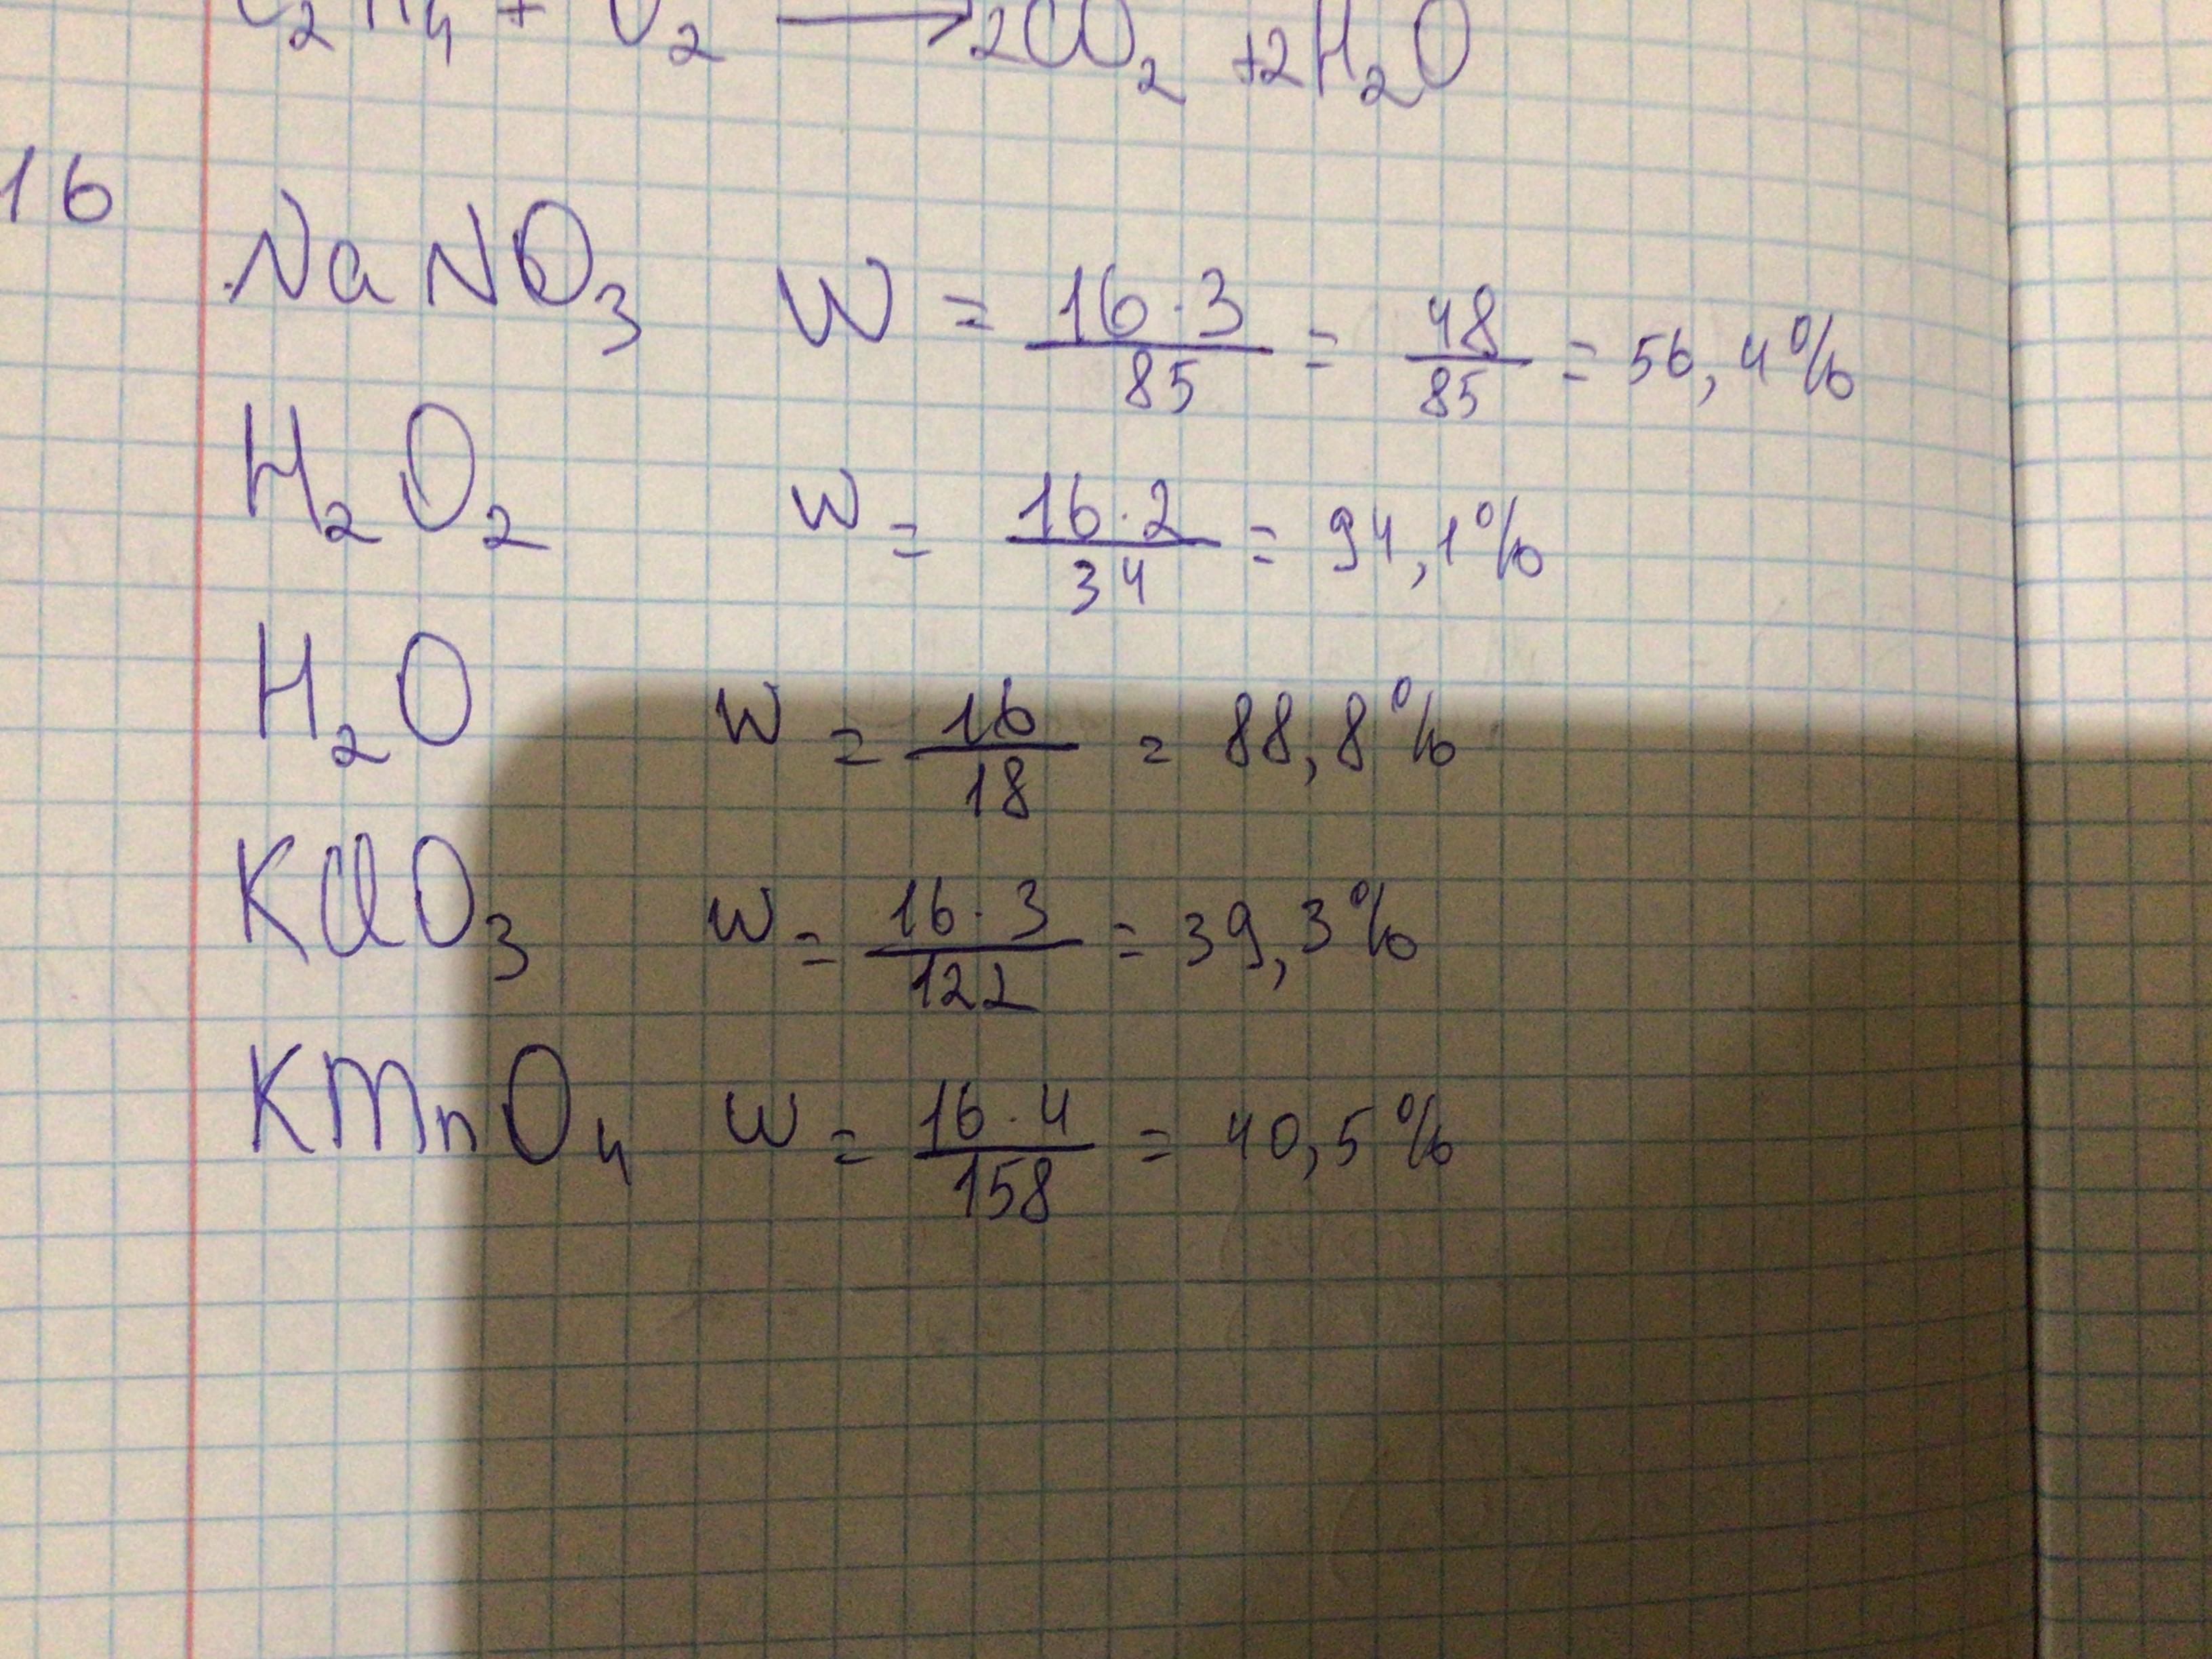 C₂H₄ + O₂ → 2CO₂ + 2H₂O
16
NaNO₃ W = 16·3/85 = 48/85 = 56,4%
H₂O₂ W = 16·2/34 = 94,1%
H₂O W = 16/18 = 88,8%
KClO₃ W = 16·3/122 = 39,3%
KMnO₄ W = 16·4/158 = 40,5%